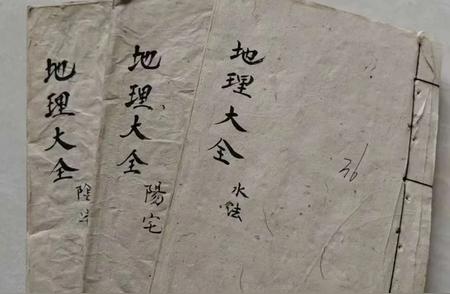 地理大全
水法
36
地理大全
陽宅
地理大全